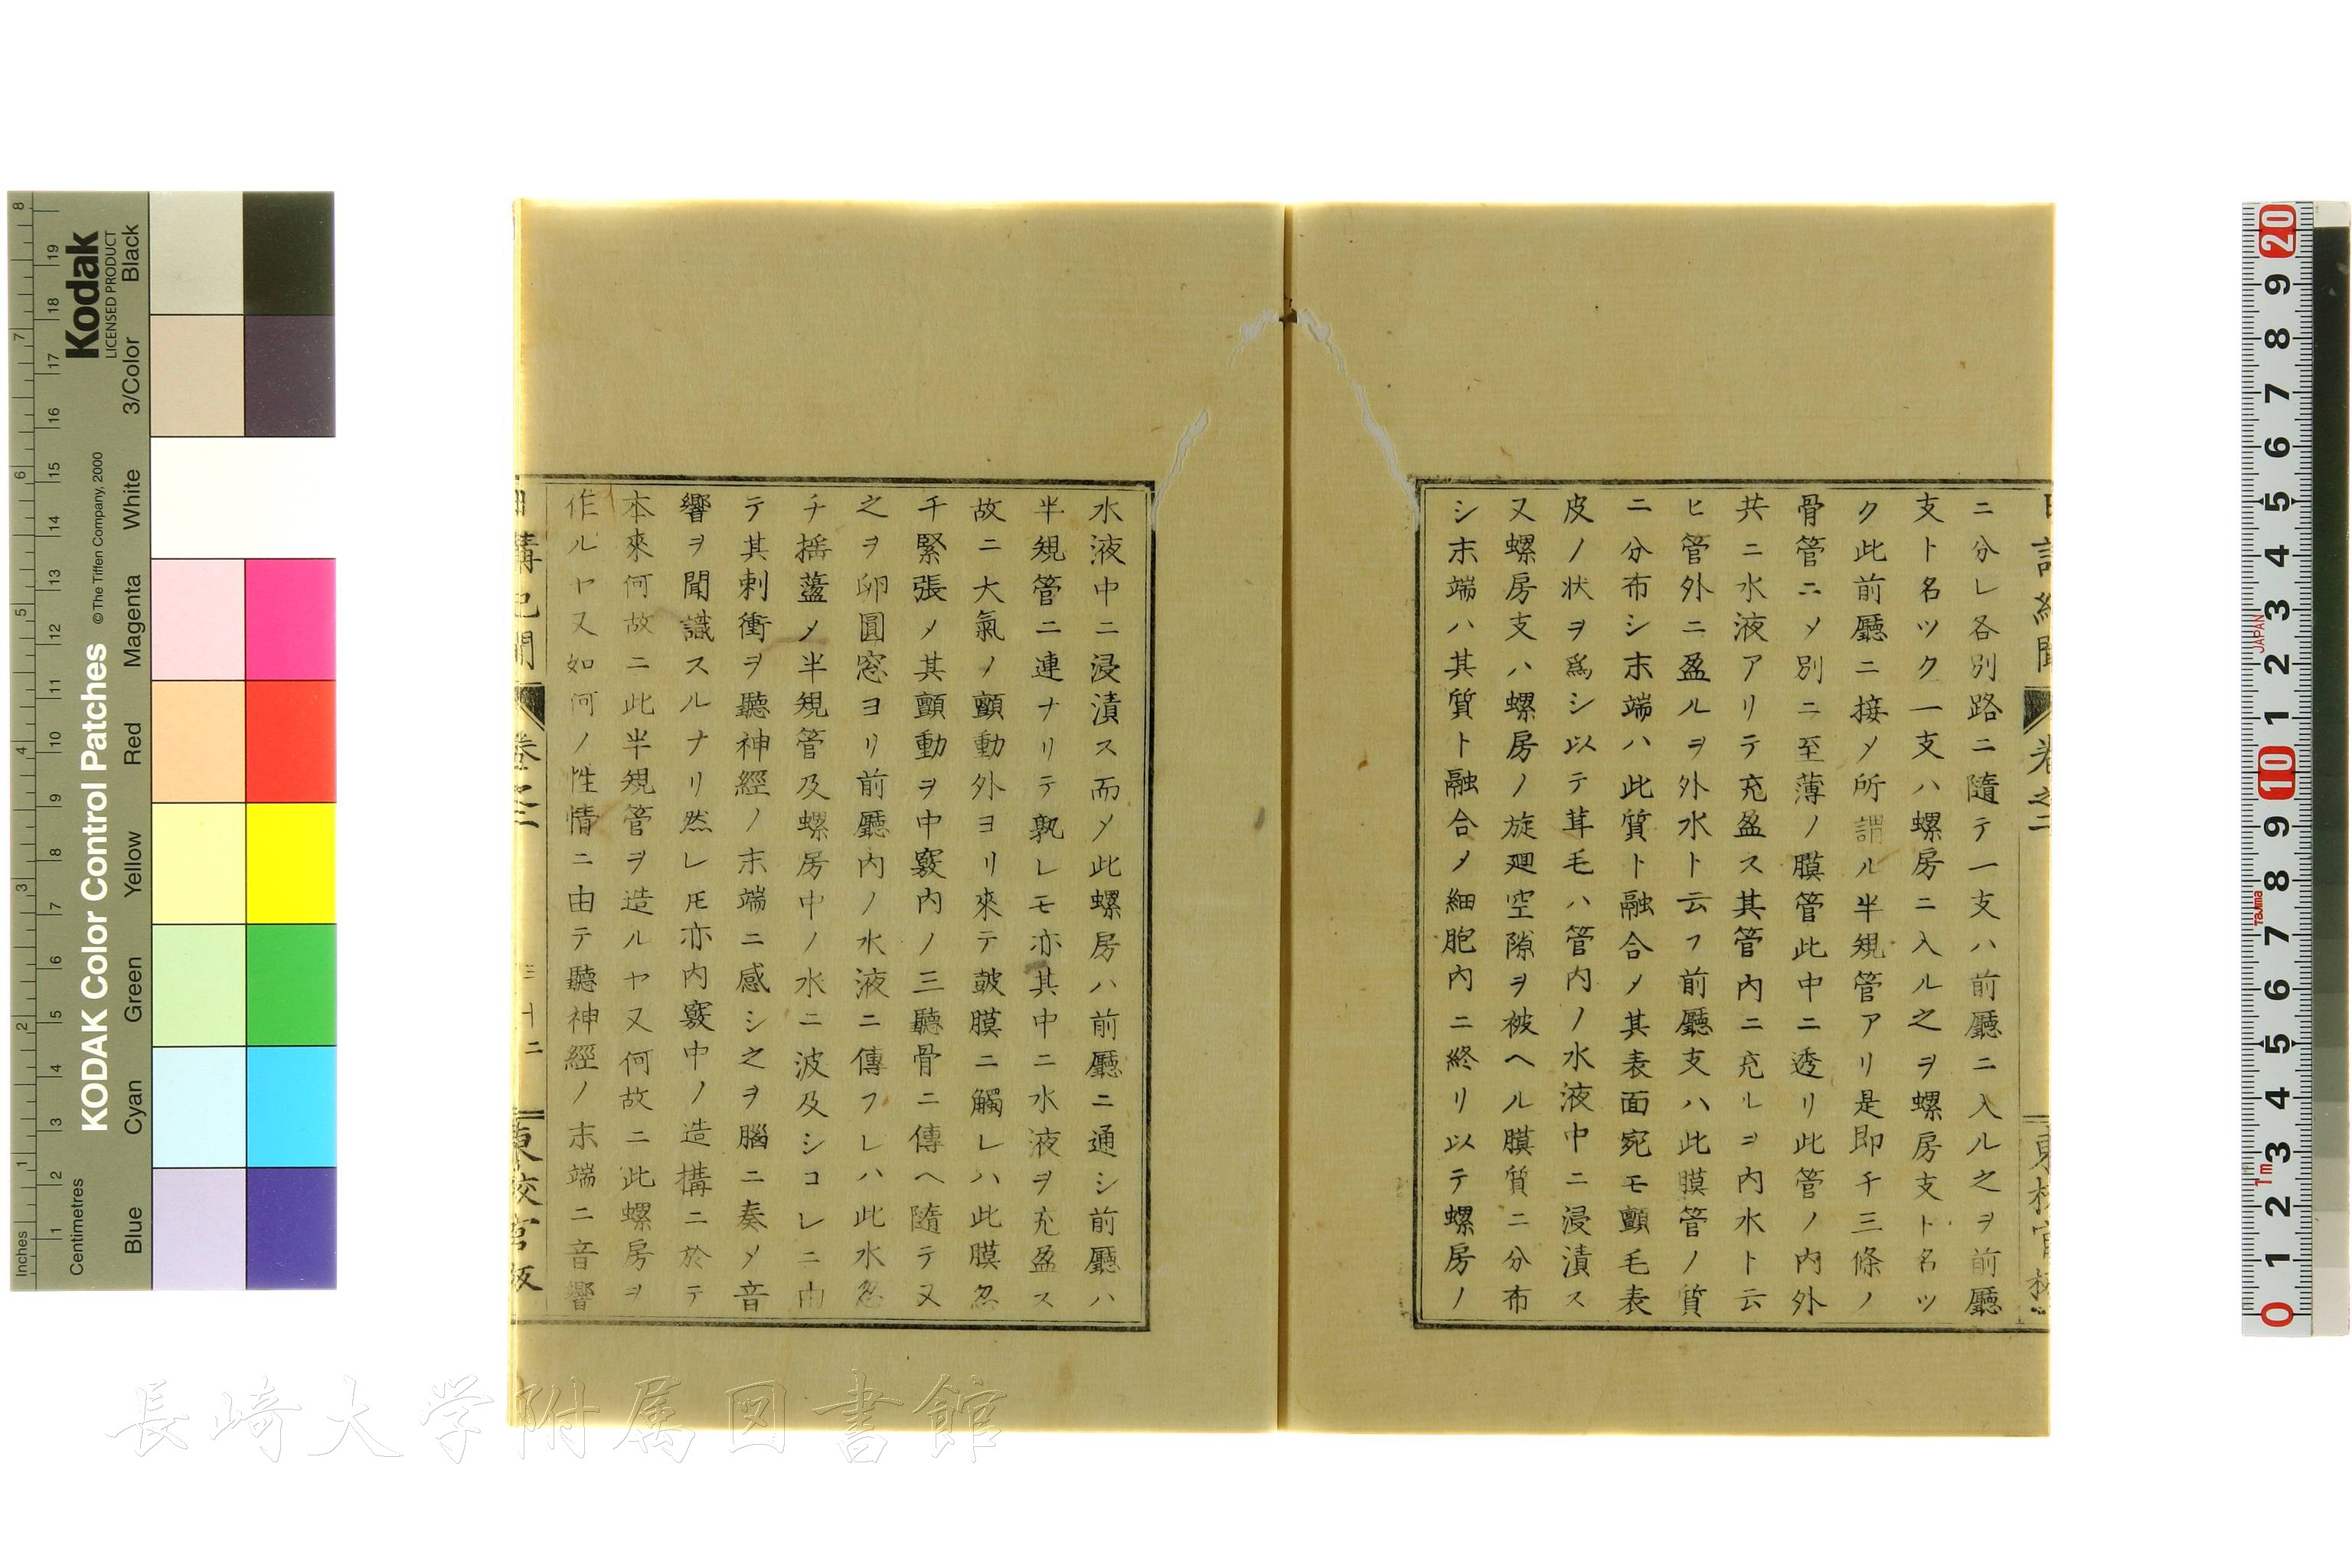 ニ分レ各別路ニ隨テ一支ハ前廳ニ入ル之ヲ前廳
支ト名ツク一支ハ螺房ニ入ル之ヲ螺房支ト名ツ
ク此前廳ニ接メ所謂ル半規管アリ是即チ三條ノ
骨管ニメ別ニ至薄ノ膜管此中ニ透リ此管ノ内外
共ニ水液アリテ充盈ス其管内ニ充ルヲ内水ト云
ヒ管外ニ盈ルヲ外水ト云フ前廳支ハ此膜管ノ質
ニ分布シ末端ハ此質ト融合メ其表面宛モ顫毛表
皮ノ狀ヲ爲シ以テ茸毛ハ管内ノ水液中ニ浸漬ス
又螺房支ハ螺房ノ旋廻空隙ヲ被ヘル膜質ニ分布
シ末端ハ其質ト融合メ細胞内ニ終リ以テ螺房ノ
水液中ニ浸漬ス而メ此螺房ハ前廳ニ通シ前廳ハ
半規管ニ連ナリテ孰レモ亦其中ニ水液ヲ充盈ス
故ニ大氣ノ顫動外ヨリ來テ皷膜ニ觸レハ此膜忽
チ緊張メ其顫動ヲ中竅内ノ三聽骨ニ傳ヘ隨テ又
之ヲ卵圓窓ヨリ前廳内ノ水液ニ傳フレハ此水忽
チ搖蘯メ半規管及螺房中ノ水ニ波及シコレニ由
テ其刺衝ヲ聽神經ノ末端ニ感シ之ヲ腦ニ奏メ音
響ヲ聞識スルナリ然レ𪜈亦内竅中ノ造搆ニ於テ
本來何故ニ此半規管ヲ造ルヤ又何故ニ此螺房ヲ
作ルヤ又如何ノ性情ニ由テ聽神經ノ末端ニ音響
卷之二
三十二
東校官板
長崎大学附属図書館
Kodak
LICENSED PRODUCT
KODAK Color Control Patches
© The Tiffen Company, 2000
Inches
Centimetres
Blue Cyan Green Yellow Red Magenta White 3/Color Black
JAPAN
Tajima
1m